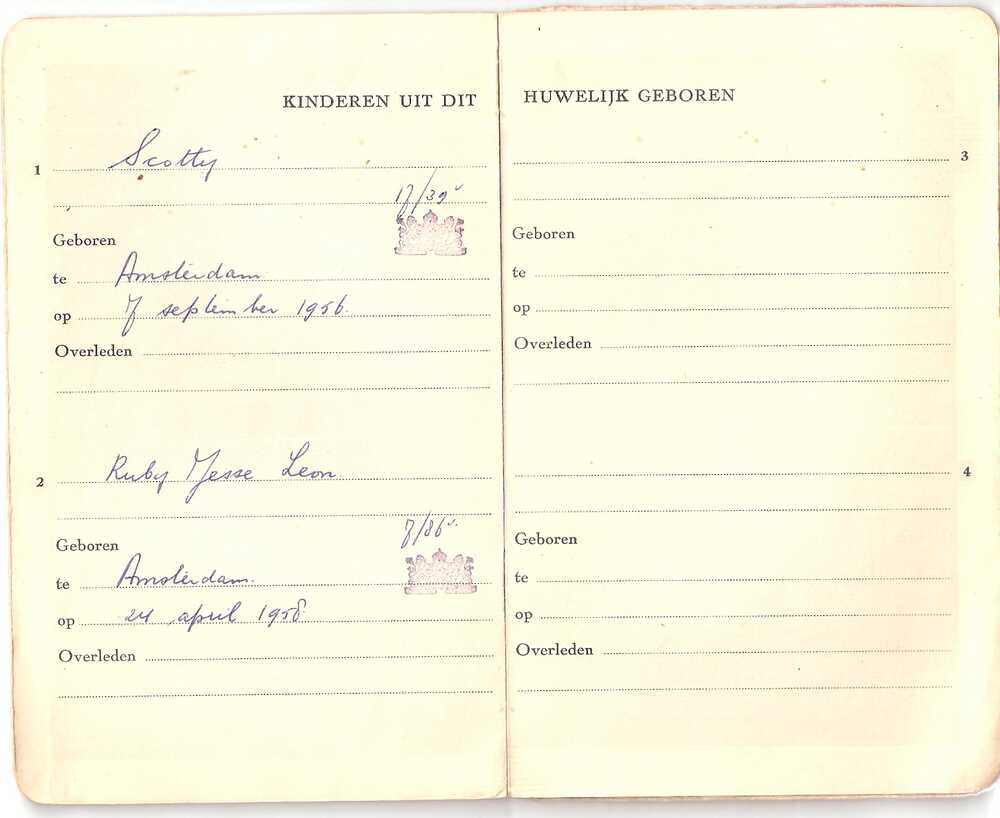 KINDEREN UIT DIT
1 Scotty
Geboren
te Amsterdam
op 7 september 1956.
Overleden
2 Ruby Jesse Leon.
Geboren
te Amsterdam.
op 24 april 1958
Overleden
HUWELIJK GEBOREN
3
Geboren
te
op
Overleden
4
Geboren
te
op
Overleden